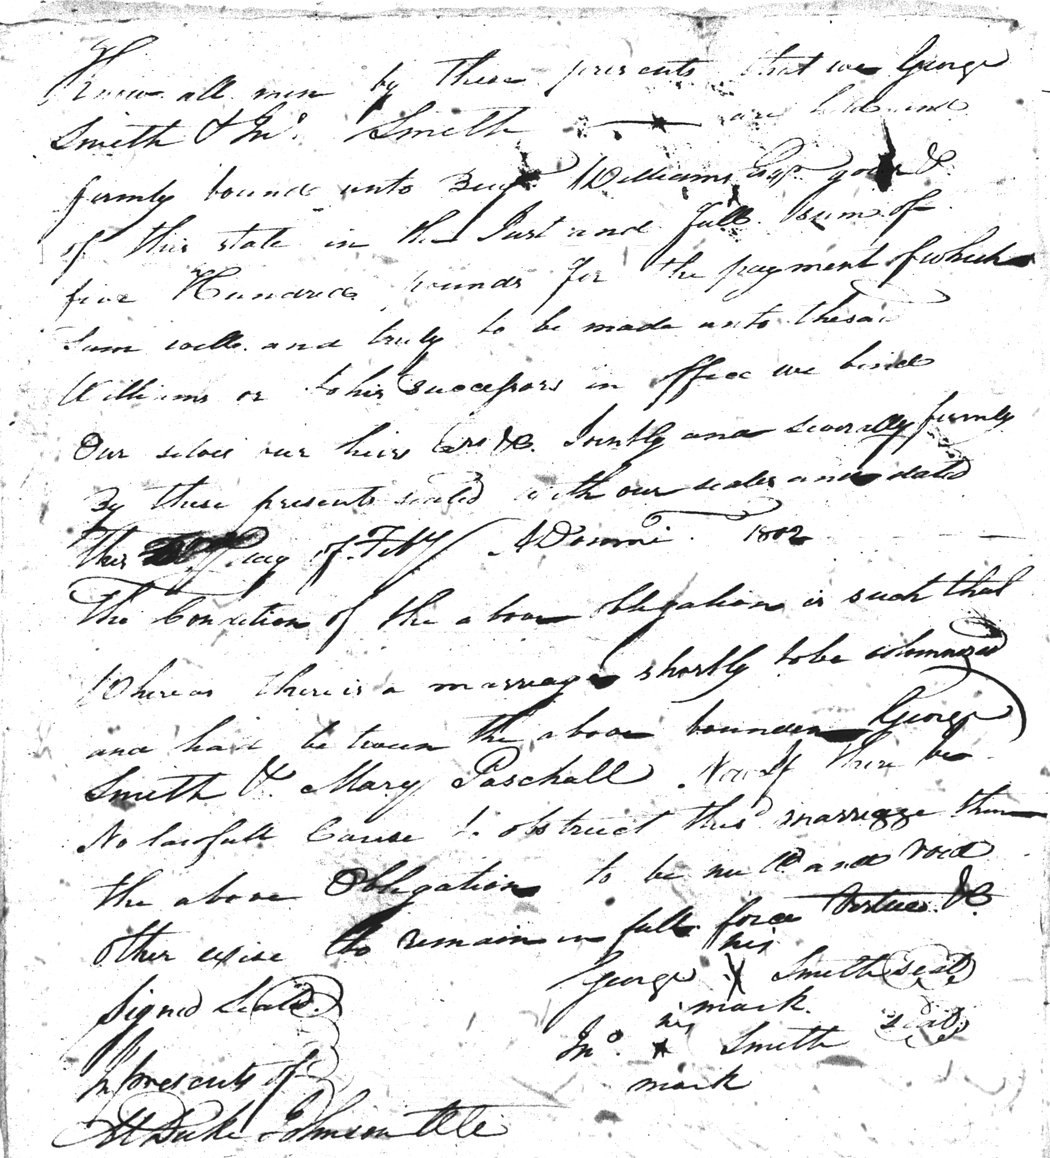 Know all men by these presents that we George
Smith & Jno. Smith are held and
firmly bound unto Benj. Williams Esqr. &c
of this state in the Just and full sum of
five Hundred pounds for the payment of which
Sum well and truly to be made unto the said
Williams or to his successors in office we bind
Our selves our heirs &c. Jointly and severally firmly
By these presents sealed with our seales and dated
this day of Feby ADomini 1802
The Condition of the above obligation is such that
Whereas there is a marriage shortly to be solomnized
and had between the above bounden George
Smith & Mary Paschall. Now If there be
No lawfull Cause to obstruct this marriage then
the above Obligation to be null and void
other wise to remain in full force Vertue &c
his
George X Smith seal
mark.
Signed Seald.
his
Jno. Smith seal
mark
In presents of
M Duke Johnson